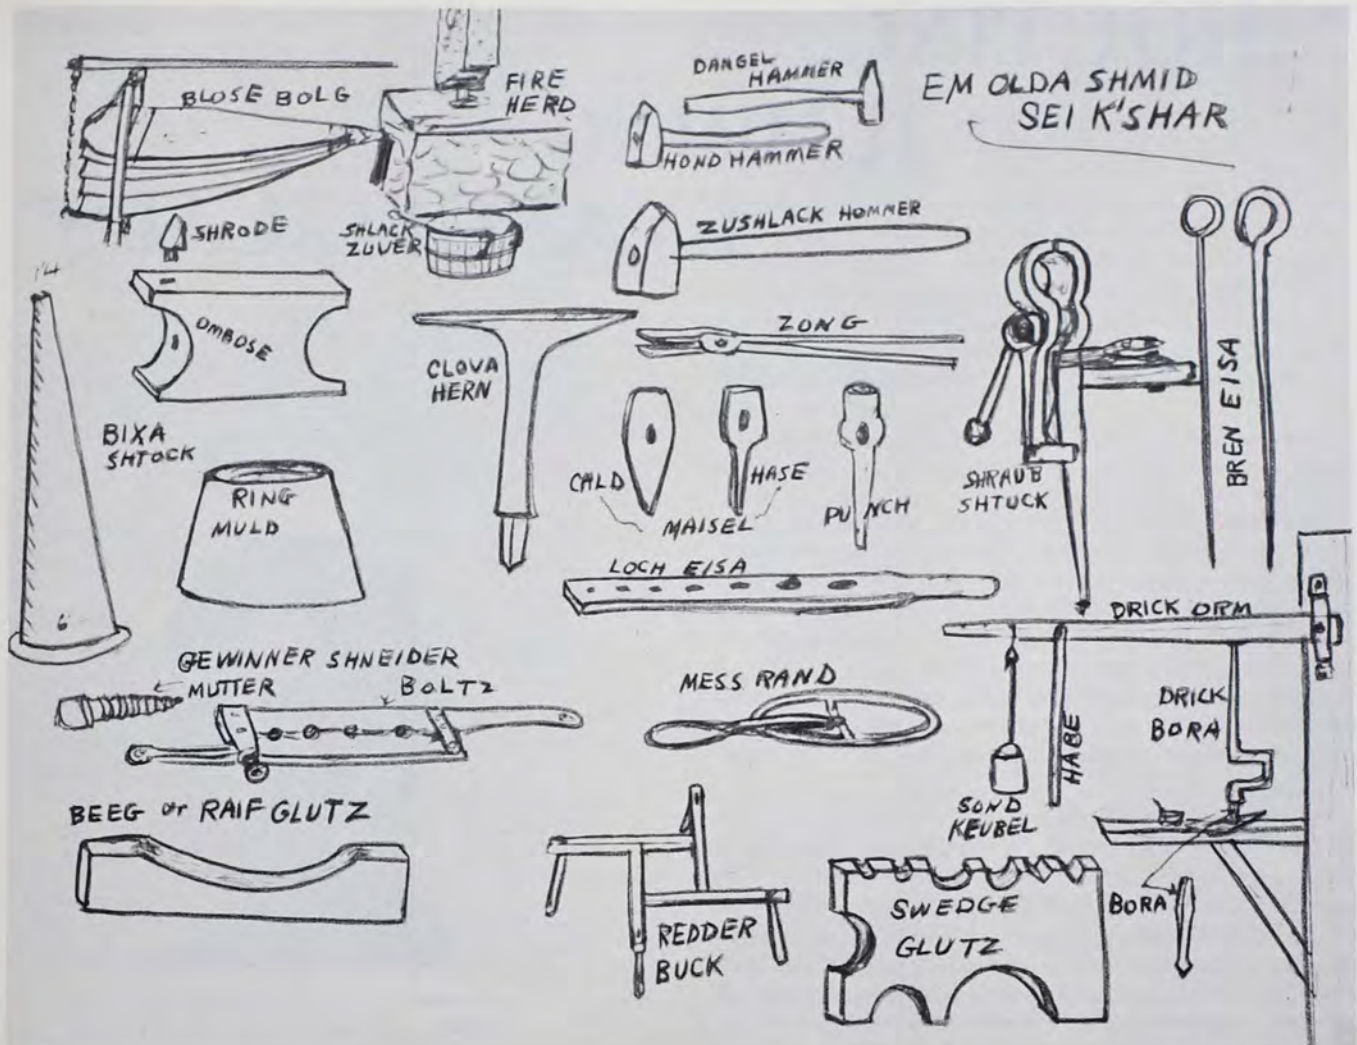 EM OLDA SHMID
SEI K'SHAR
BLOSE BOLG
FIRE
HERD
DANGEL
HAMMER
HOND HAMMER
SHRODE
SHLACK
ZUVER
ZUSHLACK HOMMER
14
OMBOSE
CLOVA
HERN
ZONG
BREN EISA
BIXA
SHTOCK
RING
MULD
CALD
HASE
MAISEL
PUNCH
SHRAUB
SHTUCK
LOCH EISA
6
DRICK ORM
GEWINNER SHNEIDER
MUTTER
BOLTZ
MESS RAND
HABE
DRICK
BORA
SOND
KEUBEL
BEEG or RAIF GLUTZ
REDDER
BUCK
SWEDGE
GLUTZ
BORA